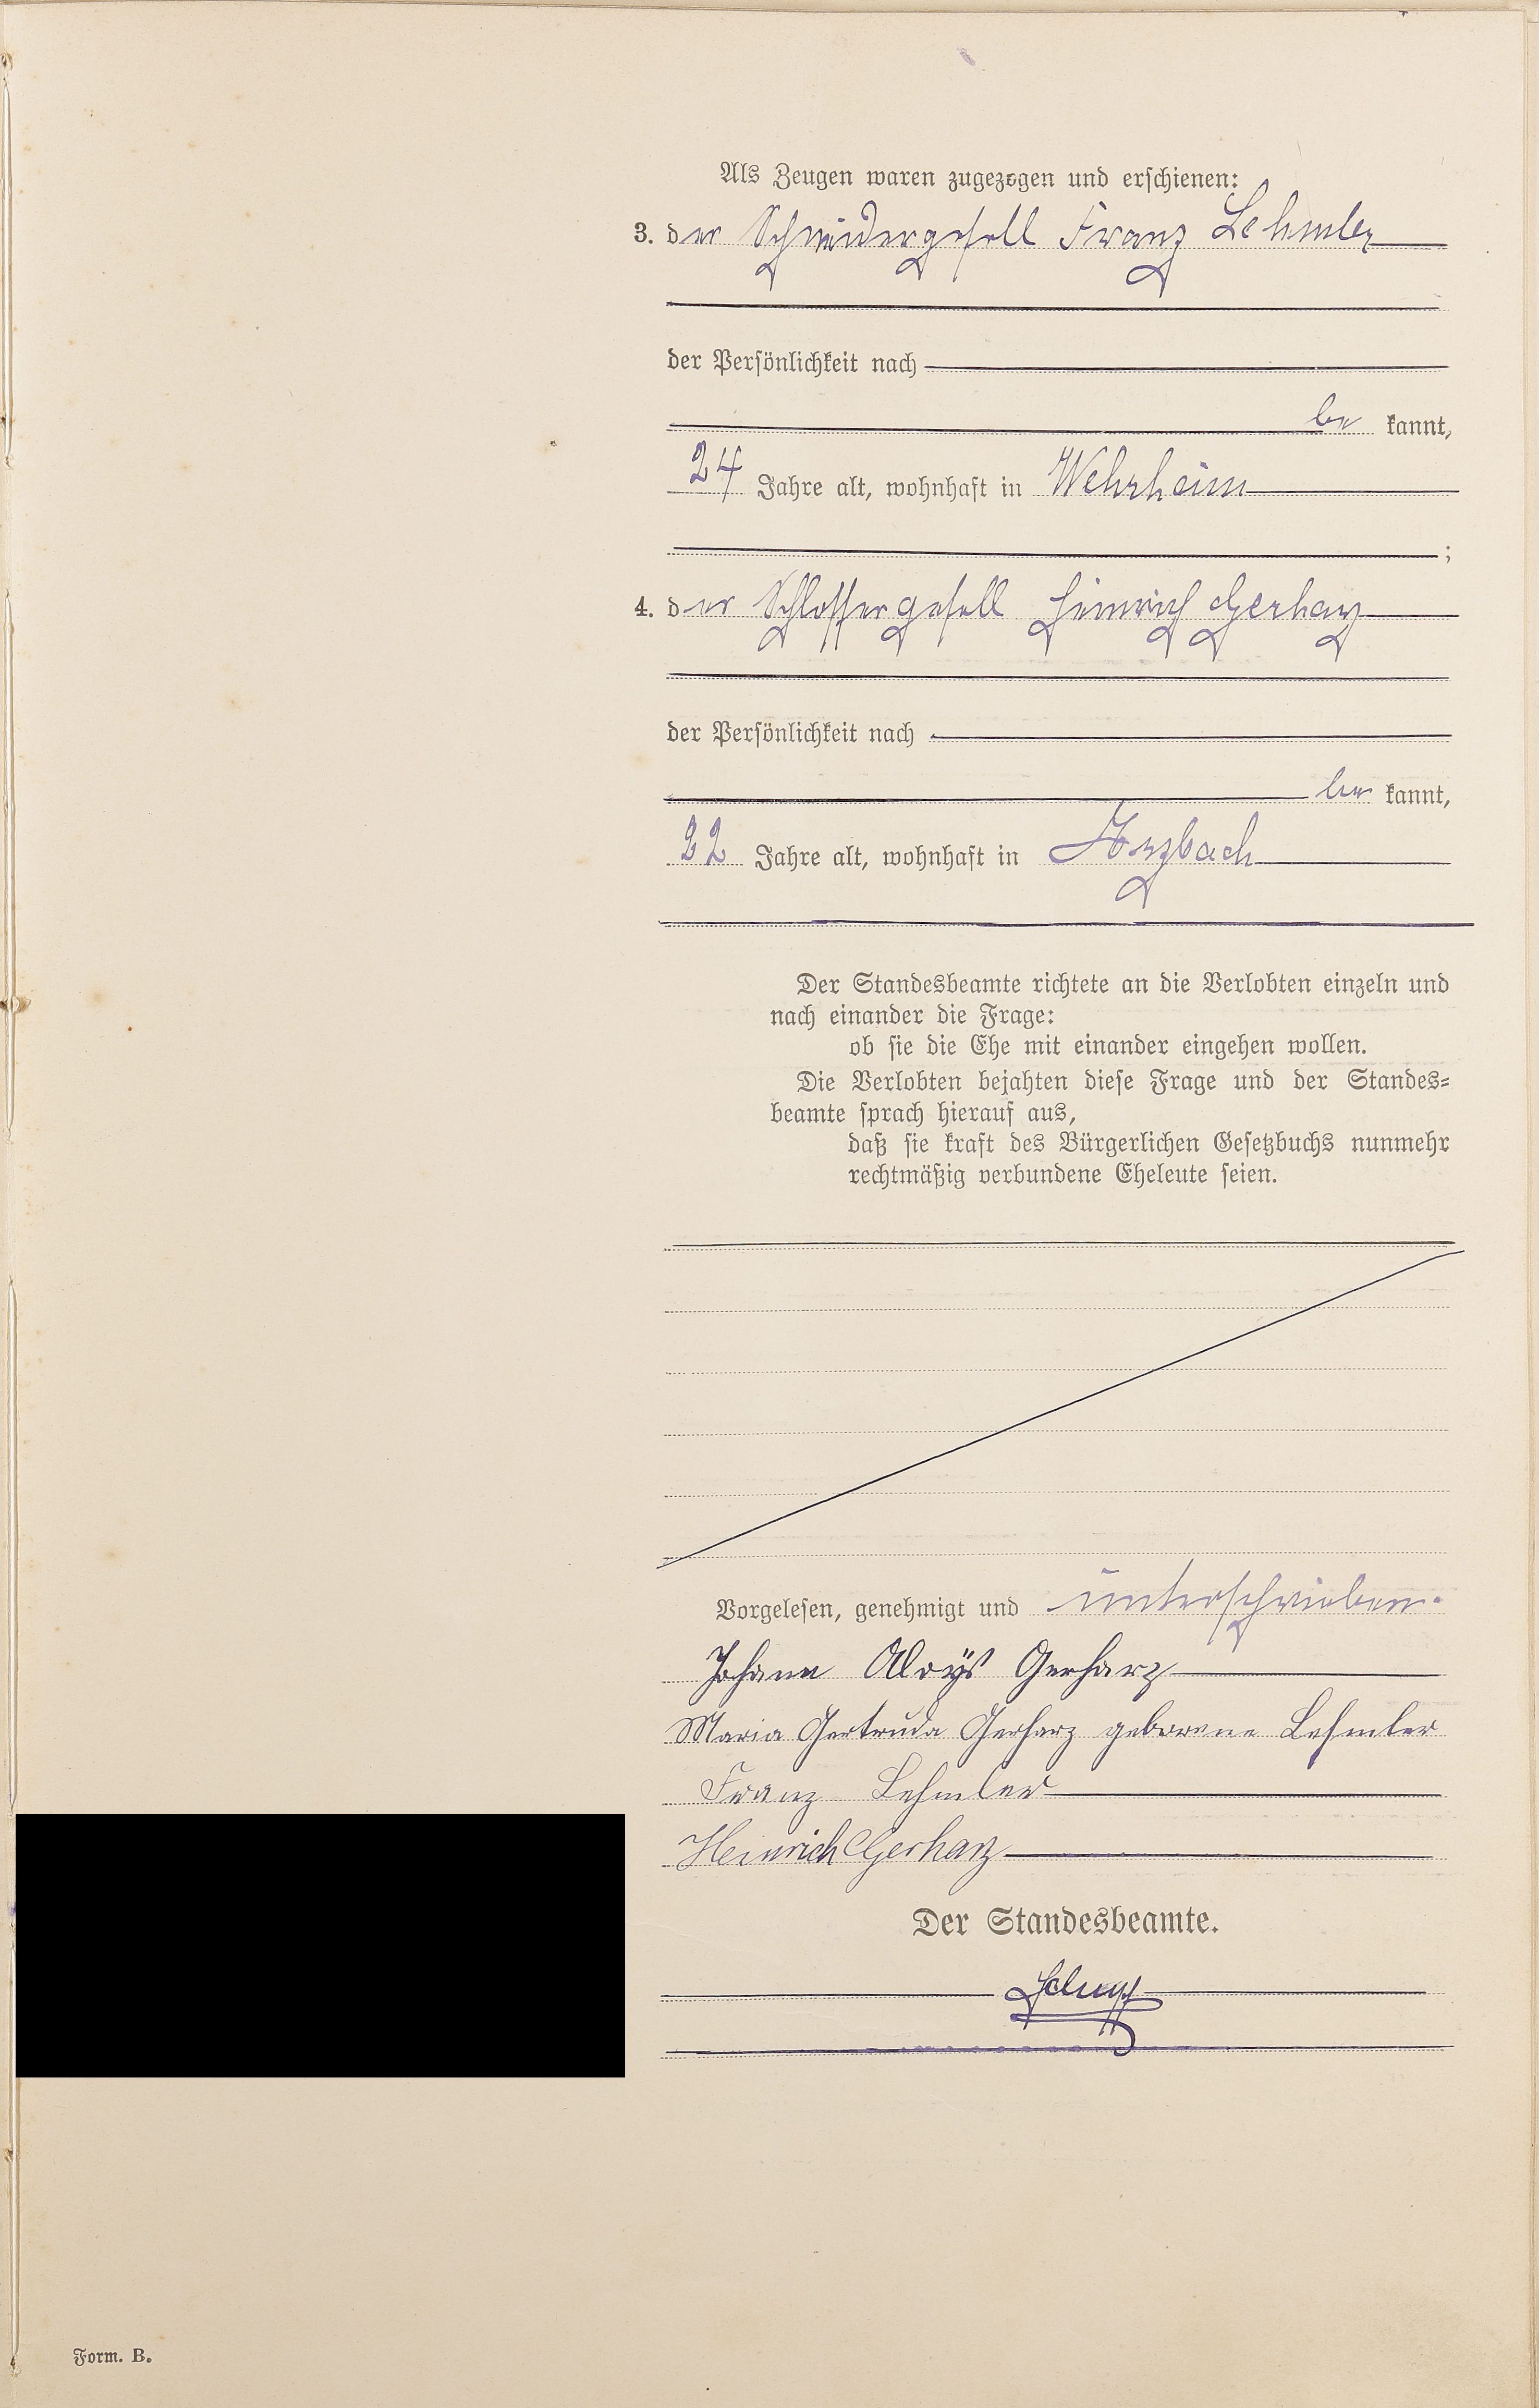 Als Zeugen waren zugezogen und erschienen:
3. der Schneidergesell Franz Lehmler
der Persönlichkeit nach
be kannt,
24 Jahre alt, wohnhaft in Wehrheim
;
4. der Schlossergesell Heinrich Gerharz
der Persönlichkeit nach
be kannt,
22 Jahre alt, wohnhaft in
Der Standesbeamte richtete an die Verlobten einzeln und
nach einander die Frage:
ob sie die Ehe mit einander eingehen wollen.
Die Verlobten bejahten diese Frage und der Standes-
beamte sprach hierauf aus,
daß sie kraft des Bürgerlichen Gesetzbuchs nunmehr
rechtmäßig verbundene Eheleute seien.
Vorgelesen, genehmigt und unterschrieben.
Johann Aloys Gerharz
Maria Gertruda Gerharz geborene Lehmler
Franz Lehmler
Heinrich Gerharz
Der Standesbeamte.
Form. B.